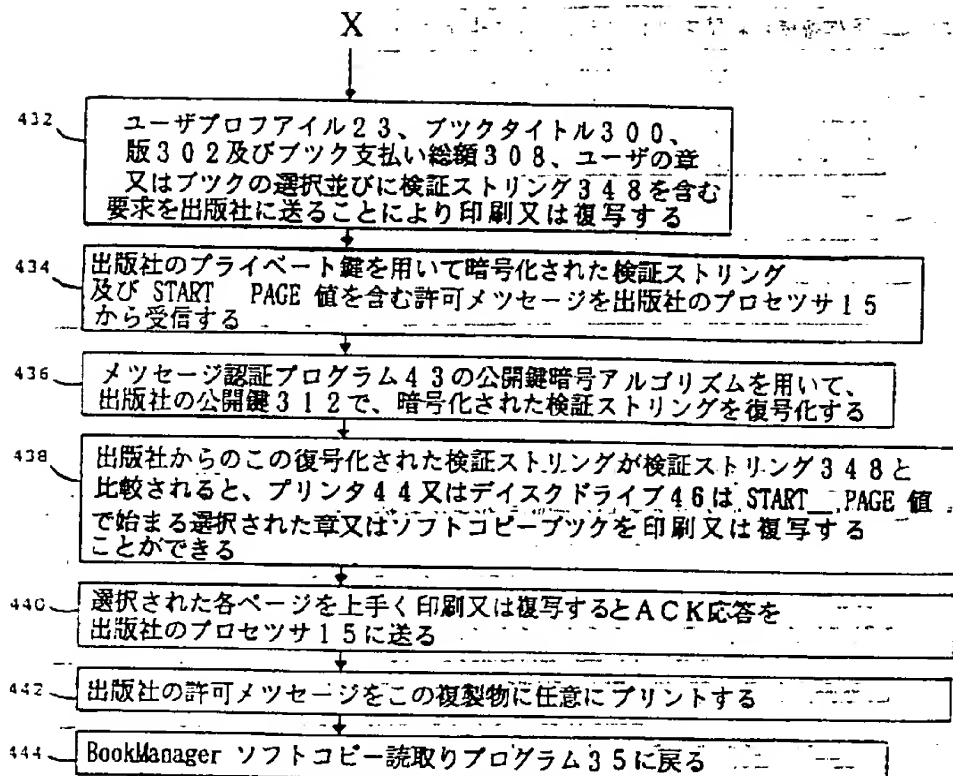 X
432
ユーザプロフアイル23、ブツクタイトル300、
版302及びブツク支払い総額308、ユーザの章
又はブツクの選択並びに検証ストリング348を含む
要求を出版社に送ることにより印刷又は複写する
434
出版社のプライベート鍵を用いて暗号化された検証ストリング
及び START__PAGE 値を含む許可メツセージを出版社のプロセツサ15
から受信する
436
メツセージ認証プログラム43の公開鍵暗号アルゴリズムを用いて、
出版社の公開鍵312で、暗号化された検証ストリングを復号化する
438
出版社からのこの復号化された検証ストリングが検証ストリング348と
比較されると、プリンタ44又はデイスクドライブ46は START__PAGE 値
で始まる選択された章又はソフトコピーブツクを印刷又は複写する
ことができる
440
選択された各ページを上手く印刷又は複写するとACK応答を
出版社のプロセツサ15に送る
442
出版社の許可メツセージをこの複製物に任意にプリントする
444
BookManager ソフトコピー読取りプログラム35に戻る